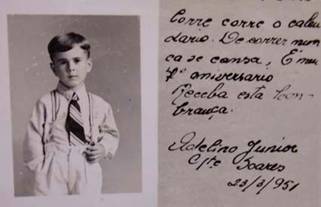 Corre corre o calen
dario. De correr nun
ca se cansa, E meu
7º aniversario
Receba esta lem
brança.
Adelino Junior
Soares
23/3/951